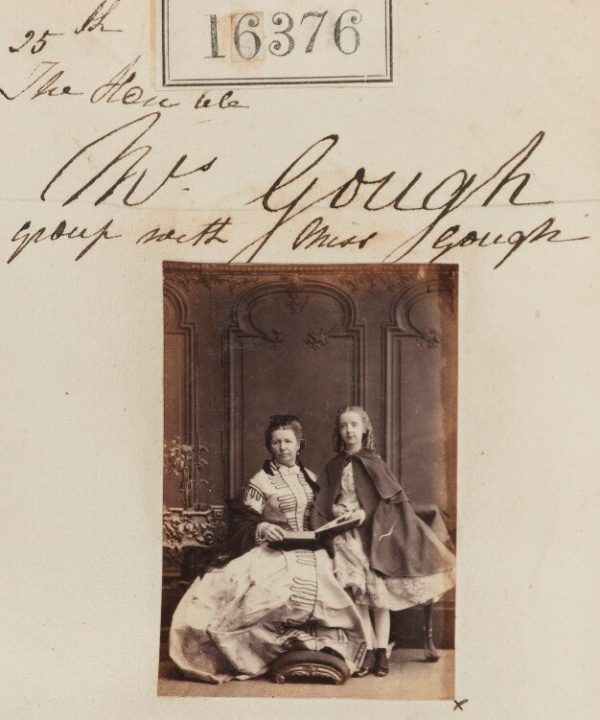 16376
25th
The Honble
Mrs Gough
group with Miss Gough
x